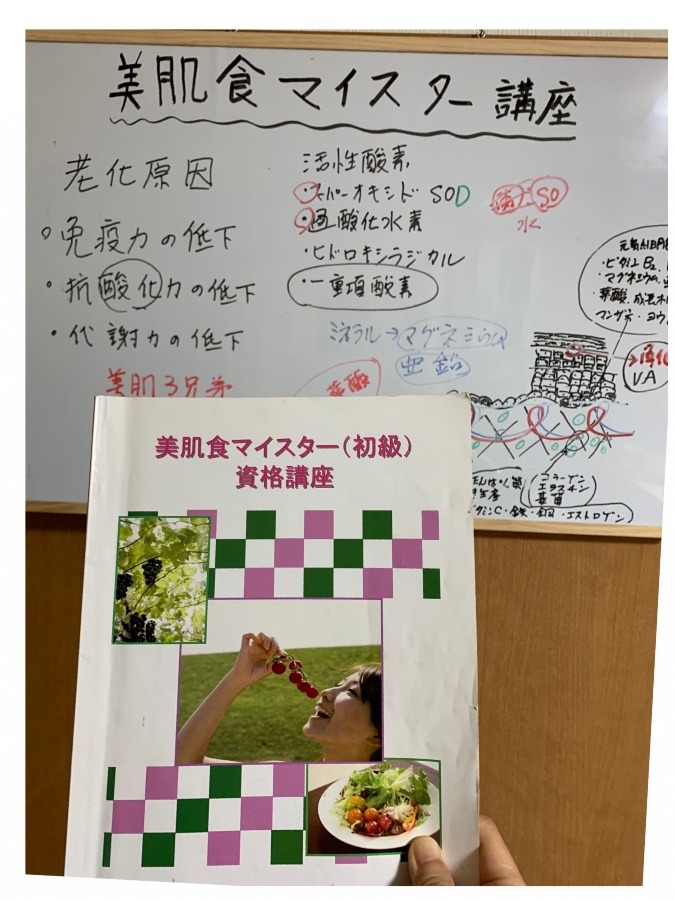 美肌食マイスター講座
老化原因
・免疫力の低下
・抗酸化力の低下
・代謝力の低下
美肌3兄弟
活性酸素
・スーパーオキシド SOD
・過酸化水素
・ヒドロキシラジカル
・一重項酸素
SO
水
ミネラル→マグネシウム
亜鉛
葉酸
・ビタミンB2
・マグネシウム
葉酸
マンガン・ヨウ
→角化
VA
コラーゲン
エラスチン
基質
ビタミンC・鉄・銅・エストロゲン
美肌食マイスター(初級)
資格講座